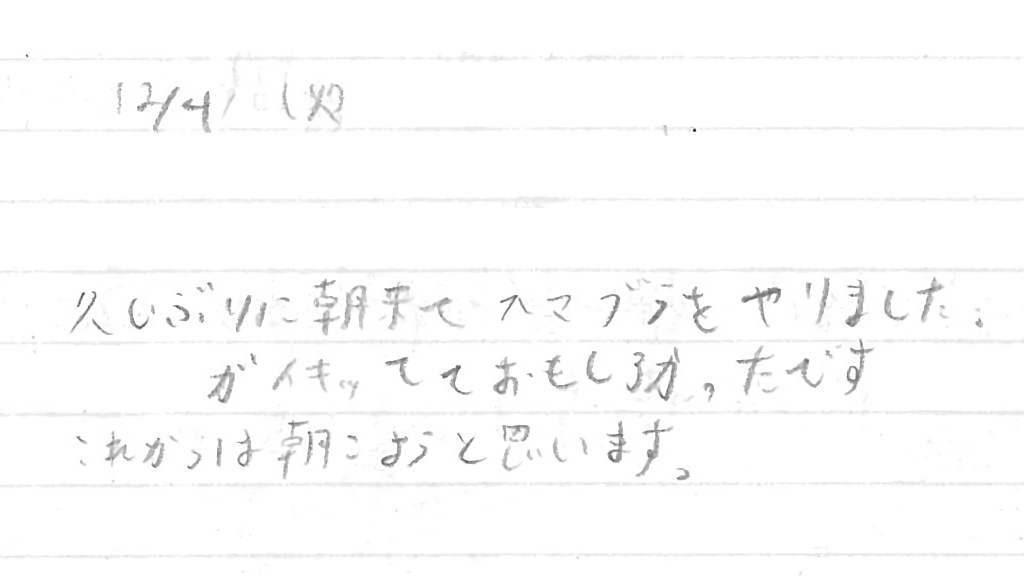 12/4 (火)
久しぶりに朝来て スマブラをやりました。
がイキッてておもしろかったです
これからは朝こようと思います。